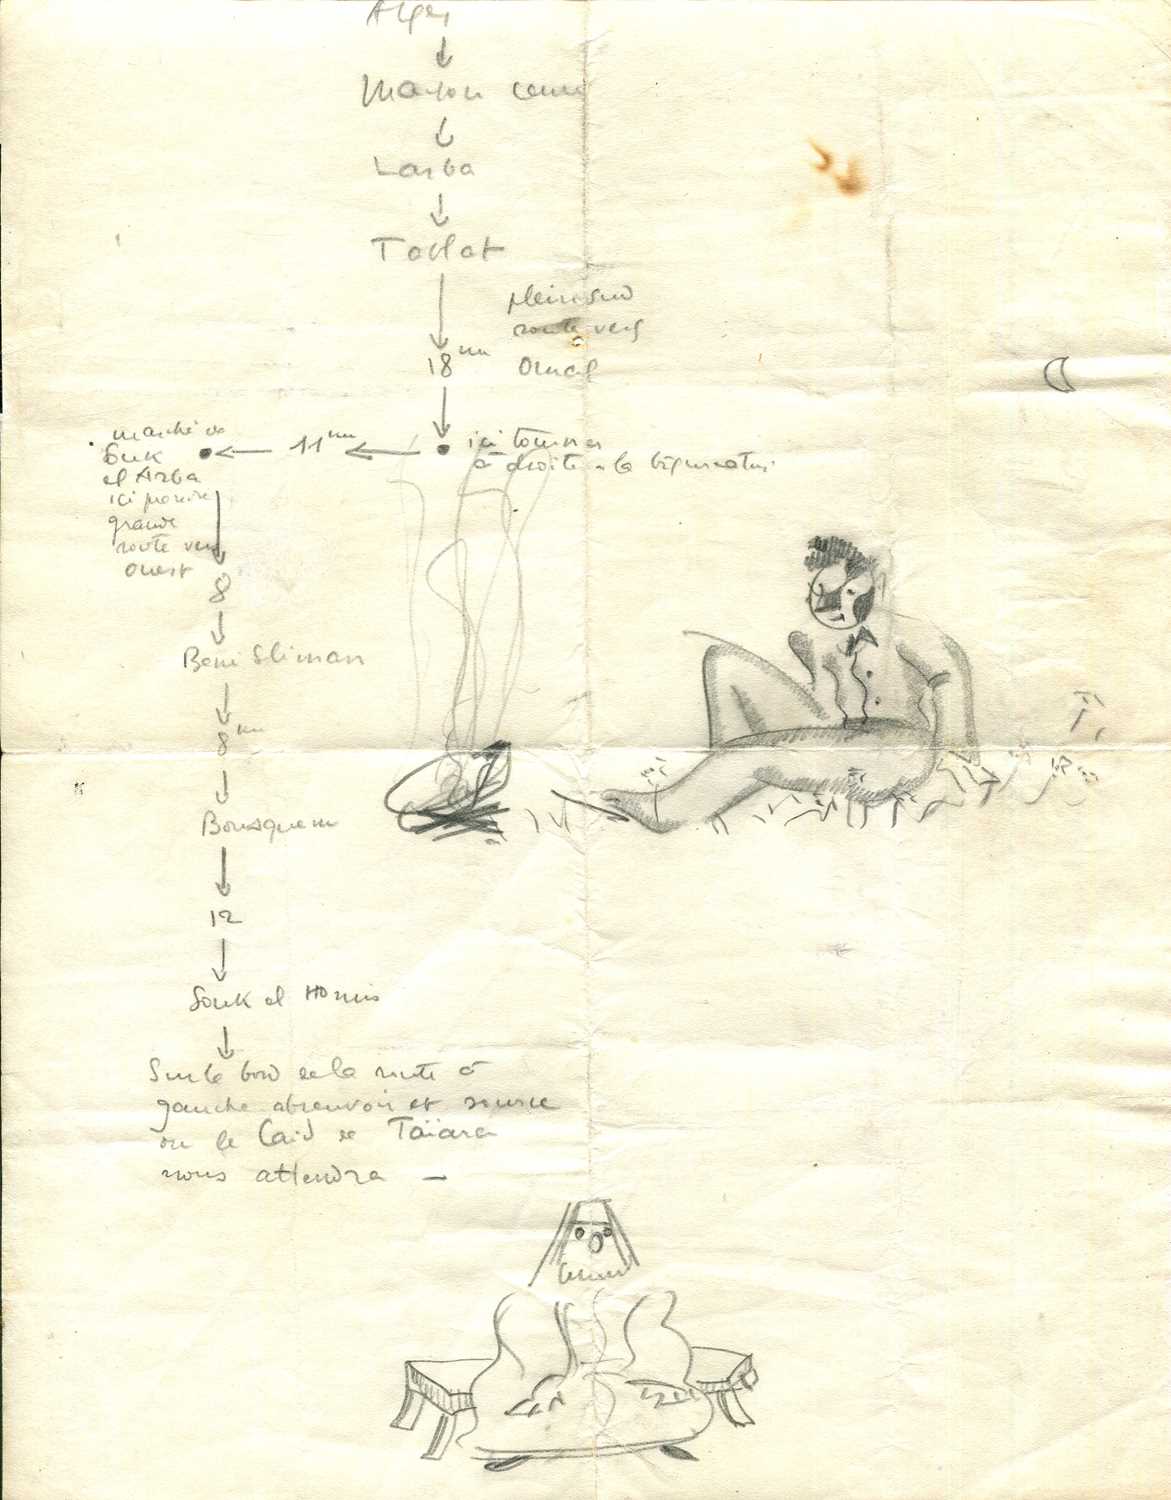 Alger
Maison carrée
Larba
Tablat
plein sud
route vers
18 km
Aumale
ici tourner
à droite à la bifurcation
11 km
marché de
Souk
el Arba
ici prendre
grande
route vers
ouest
8
Beni Sliman
8 km
Bousquem
12
Souk el Homis
Sur le bord de la route à
gauche abreuvoir et source
où le Caïd de Taïara
nous attendra —